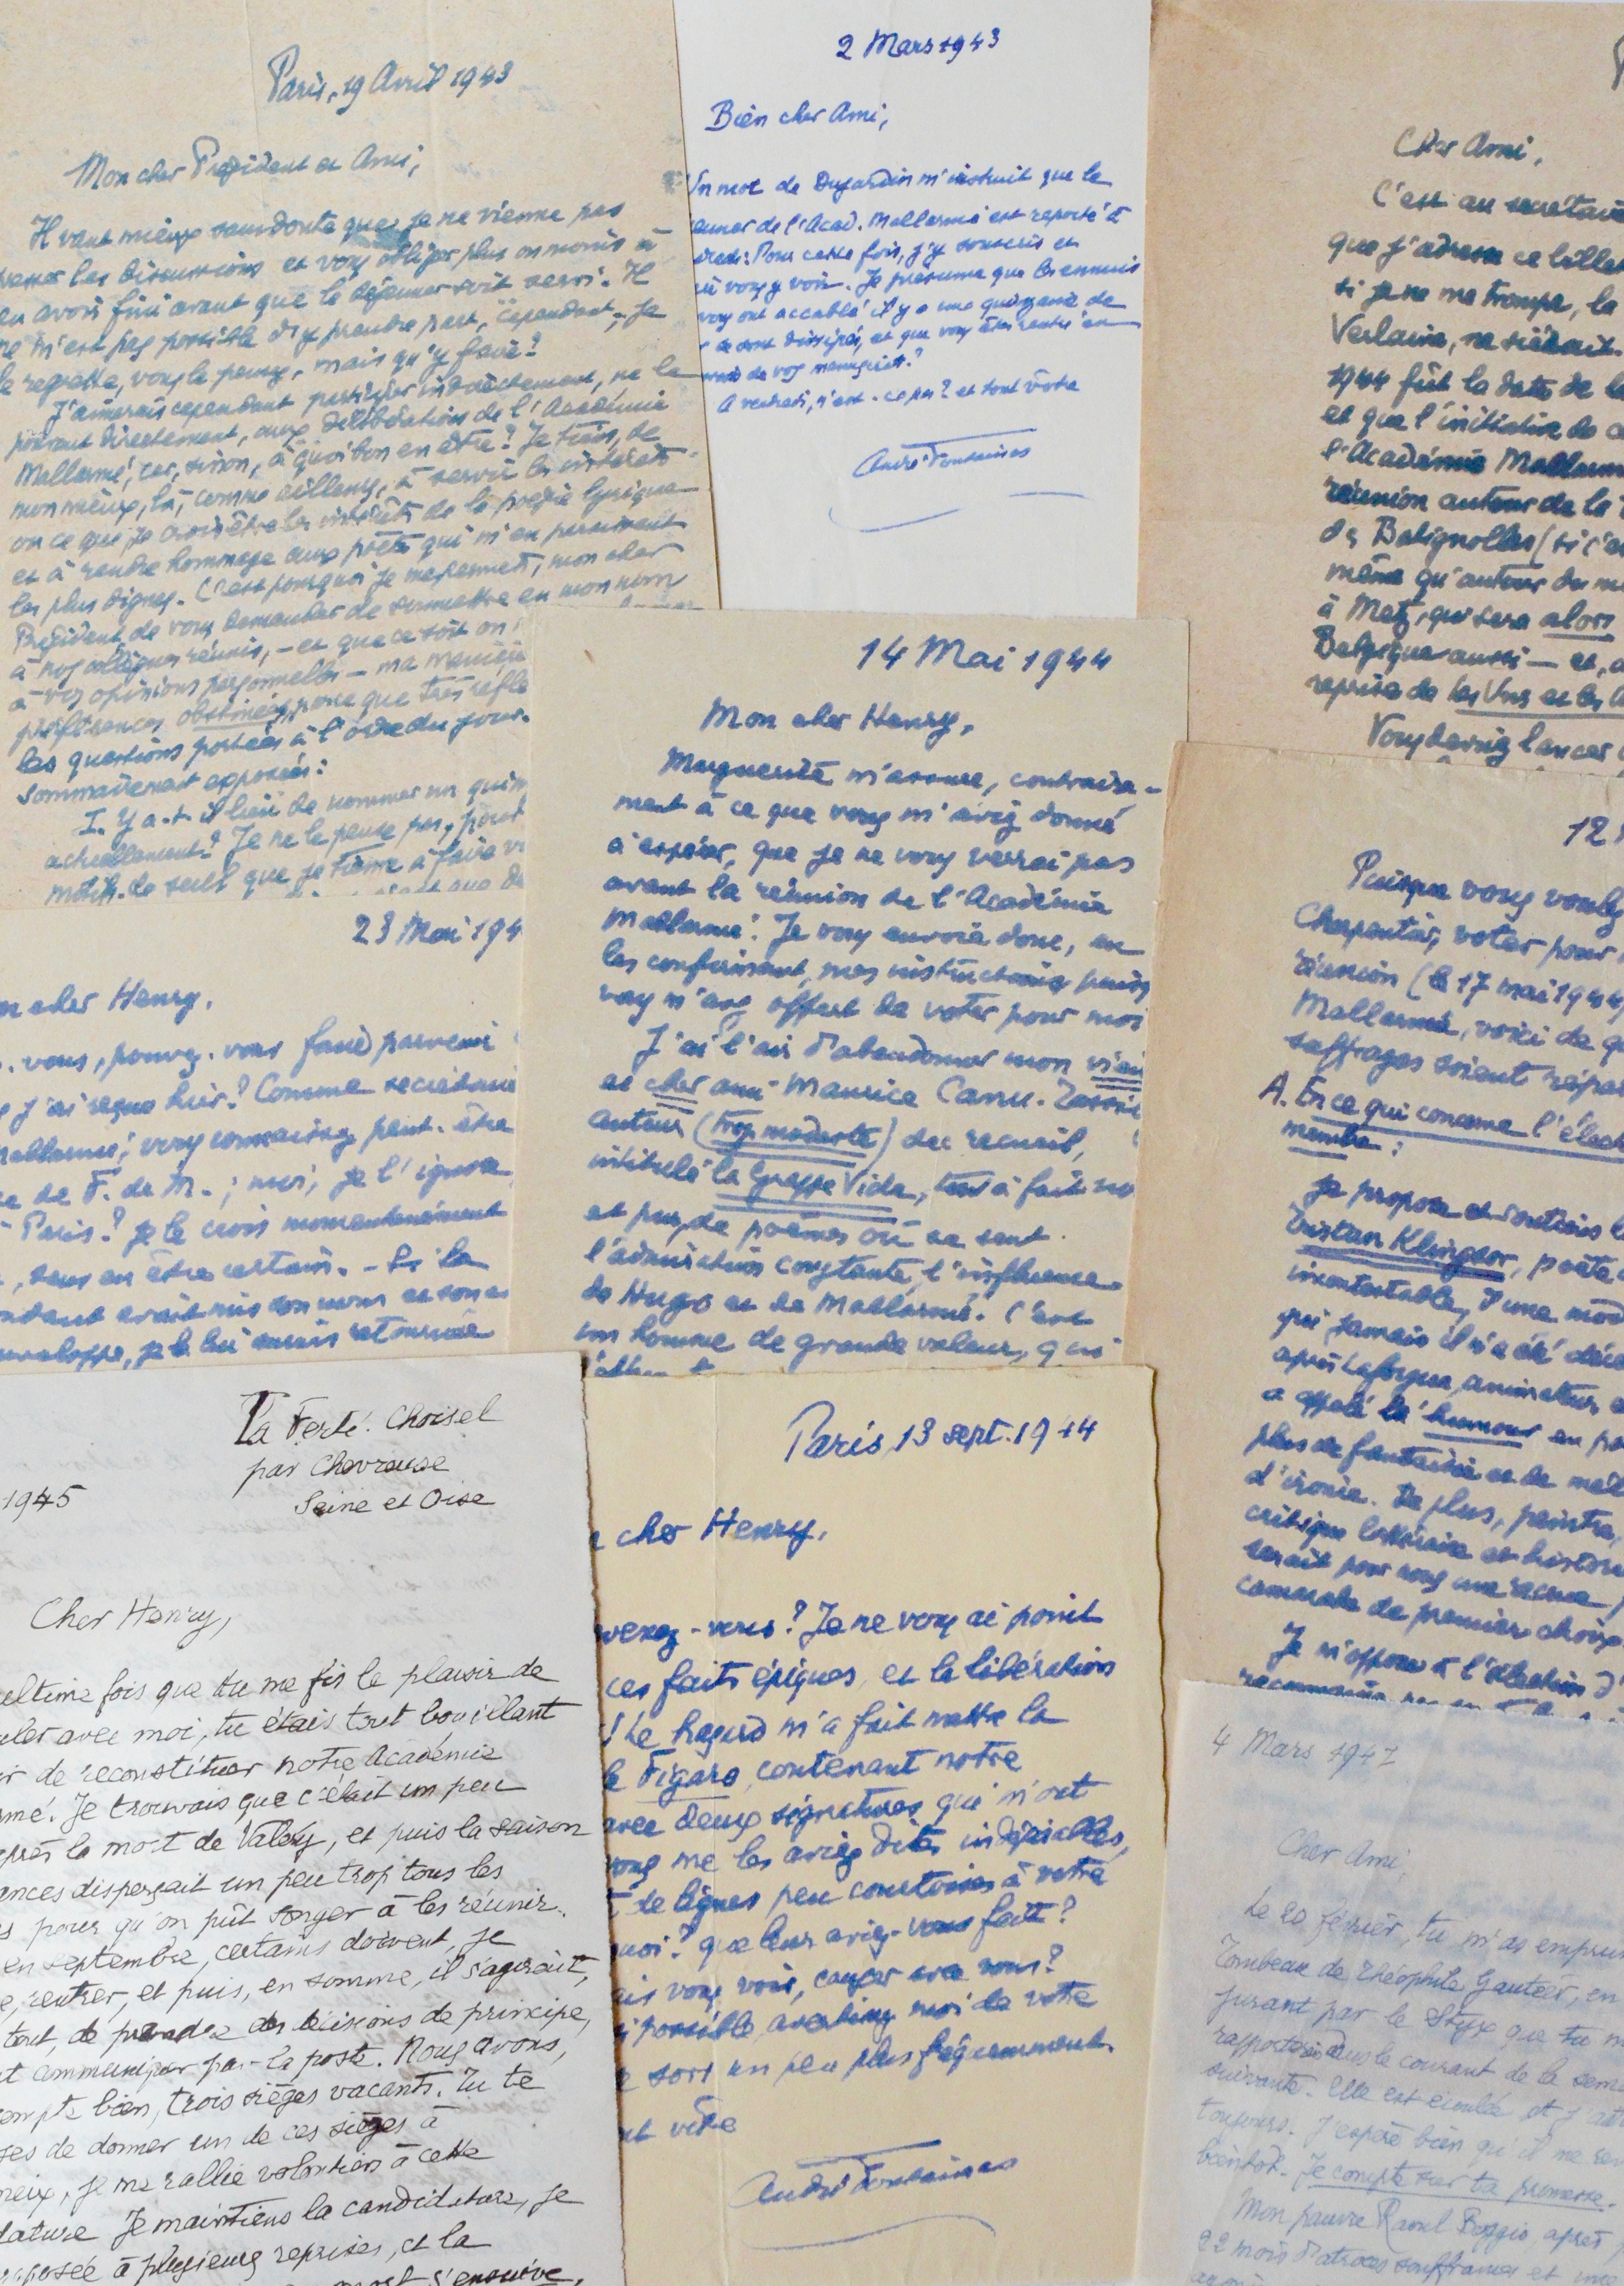 Paris, 19 Avril 1943
Mon cher Président et Ami,
Il vaut mieux sans doute que je ne vienne pas
les discussions et vous obliger plus ou moins à
en avoir fini avant que le déjeuner soit servi. Il
ne m'est pas possible d'y prendre part, cependant, je
le regrette, vous le pensez, mais qu'y faire?
J'aimerais cependant participer indirectement, ne le
pouvant directement, aux délibérations de l'Académie
Mallarmé, car, sinon, à quoi bon en être? Je tiens, de
mon mieux, là, comme ailleurs, à servir les intérêts
ou ce que je crois être les intérêts de la poésie lyrique
et à rendre hommage aux poètes qui m'en paraissent
les plus dignes. C'est pourquoi je me permets, mon cher
Président, de vous demander de soumettre en mon nom
à nos collègues réunis, – et que ce soit ou
à vos opinions personnelles – ma manière
préférences obstinées, parce que très réflé
les questions portées à l'ordre du jour.
sommairement exposées:
I. Y a-t-il lieu de nommer un quin
actuellement? Je ne le pense pas, pour
motifs. Le seul que je tienne à faire v
2 Mars 1943
Bien cher Ami,
Un mot de Dujardin m'instruit que le
de l'Acad. Mallarmé est reporté à
Pour cette fois, j'y souscris et
vous y voir. Je présume que les ennuis
vous ont accablé il y a une quinzaine de
se sont dissipés, et que vous êtes rentré en
de vos manuscrits?
A vendredi, n'est-ce pas? et tout vôtre
André Fontainas
Cher Ami,
C'est au secrétair
que j'adresse ce billet
si je ne me trompe, la
Verlaine, ne siérait
1944 fût la date de la
et que l'initiative de c
l'Académie Mallarm
réunion autour de la
des Batignolles (si c'e
même qu'autour du m
à Metz, qui sera alors
Belgique aussi – et, a
reprise de les Uns et les A
Vous devriez lancer
14 Mai 1944
Mon cher Henry,
Marguerite m'assure, contraire-
ment à ce que vous m'aviez donné
à espérer, que je ne vous verrai pas
avant la réunion de l'Académie
Mallarmé. Je vous envoie donc, en
les confirmant, mes instructions puisq
vous m'avez offert de voter pour moi
J'ai l'air d'abandonner mon vrai
et cher ami Maurice Canu-Tassi
auteur (trop modeste) du recueil,
intitulé la Grappe Vide, tout à fait
et pur, de poèmes où se sent
l'admiration constante, l'influence
de Hugo et de Mallarmé. C'est
un homme de grande valeur, qui
23 Mai 194
n cher Henry,
vous, pouvez-vous faire parvenir
j'ai reçue hier? Comme secrétaire
Mallarmé, vous connaissez peut-être
de F. de M.; moi, je l'ignore
Paris? Je le crois momentanément
, sans en être certain. – Si la
avait mis son nom et son a
enveloppe, je la lui aurais retournée
12
Puisque vous voulez
Charpentier, voter pour
réunion (le 17 mai 1944
Mallarmé, voici de q
suffrages soient répar
A. En ce qui concerne l'élect
membre:
Je propose et soutiens
Tristan Klingsor, poète
incontestable, d'une mod
qui jamais il n'a été déco
après Laforgue, animateur
a appelé l'humour en po
plus de fantaisie et de mal
d'ironie. De plus, peintre,
critique littéraire et histori
serait pour nous une recrue
camarade de premier choix
Je m'oppose à l'élection d'
La Ferté-Choisel
par Chevreuse
Seine et Oise
1945
Cher Henry,
ultime fois que tu me fis le plaisir de
avec moi, tu étais tout bouillant
de reconstituer notre Académie
rmé. Je trouvais que c'était un peu
après la mort de Valéry, et puis la saison
ances dispersait un peu trop tous les
pour qu'on pût songer à les réunir.
en septembre, certains doivent, je
rentrer, et puis, en somme, il s'agirait,
tout, de prendre des décisions de principe,
communiquer par la poste. Nous avons,
compte bien, trois sièges vacants. Tu te
de donner un de ces sièges à
je me rallie volontiers à cette
dature. Je maintiens la candidature, je
posée à plusieurs reprises, et la
s'ensuive,
Paris, 13 sept. 1944
cher Henry,
vous? Je ne vous ai point
ces faits épiques, et la libération
! Le hasard m'a fait mettre la
le Figaro, contenant notre
avec deux signatures qui m'ont
vous me les aviez dites indésirables,
de lignes peu courtoises à votre
quoi? que leur aviez-vous fait?
vous voir, causer avec vous?
possible avertissez moi de votre
sors un peu plus fréquemment.
ut vôtre
André Fontainas
4 Mars 1947
Cher Ami,
Le 20 février, tu m'as emprun
Tombeau de Théophile Gautier, en
jurant par le Styx que tu m
rapporterais dans le courant de la sem
suivante. Elle est écoulée et j'att
toujours. J'espère bien qu'il me rev
bientôt. Je compte sur ta promesse.
Mon pauvre Raoul après
22 mois d'atroces souffrances et